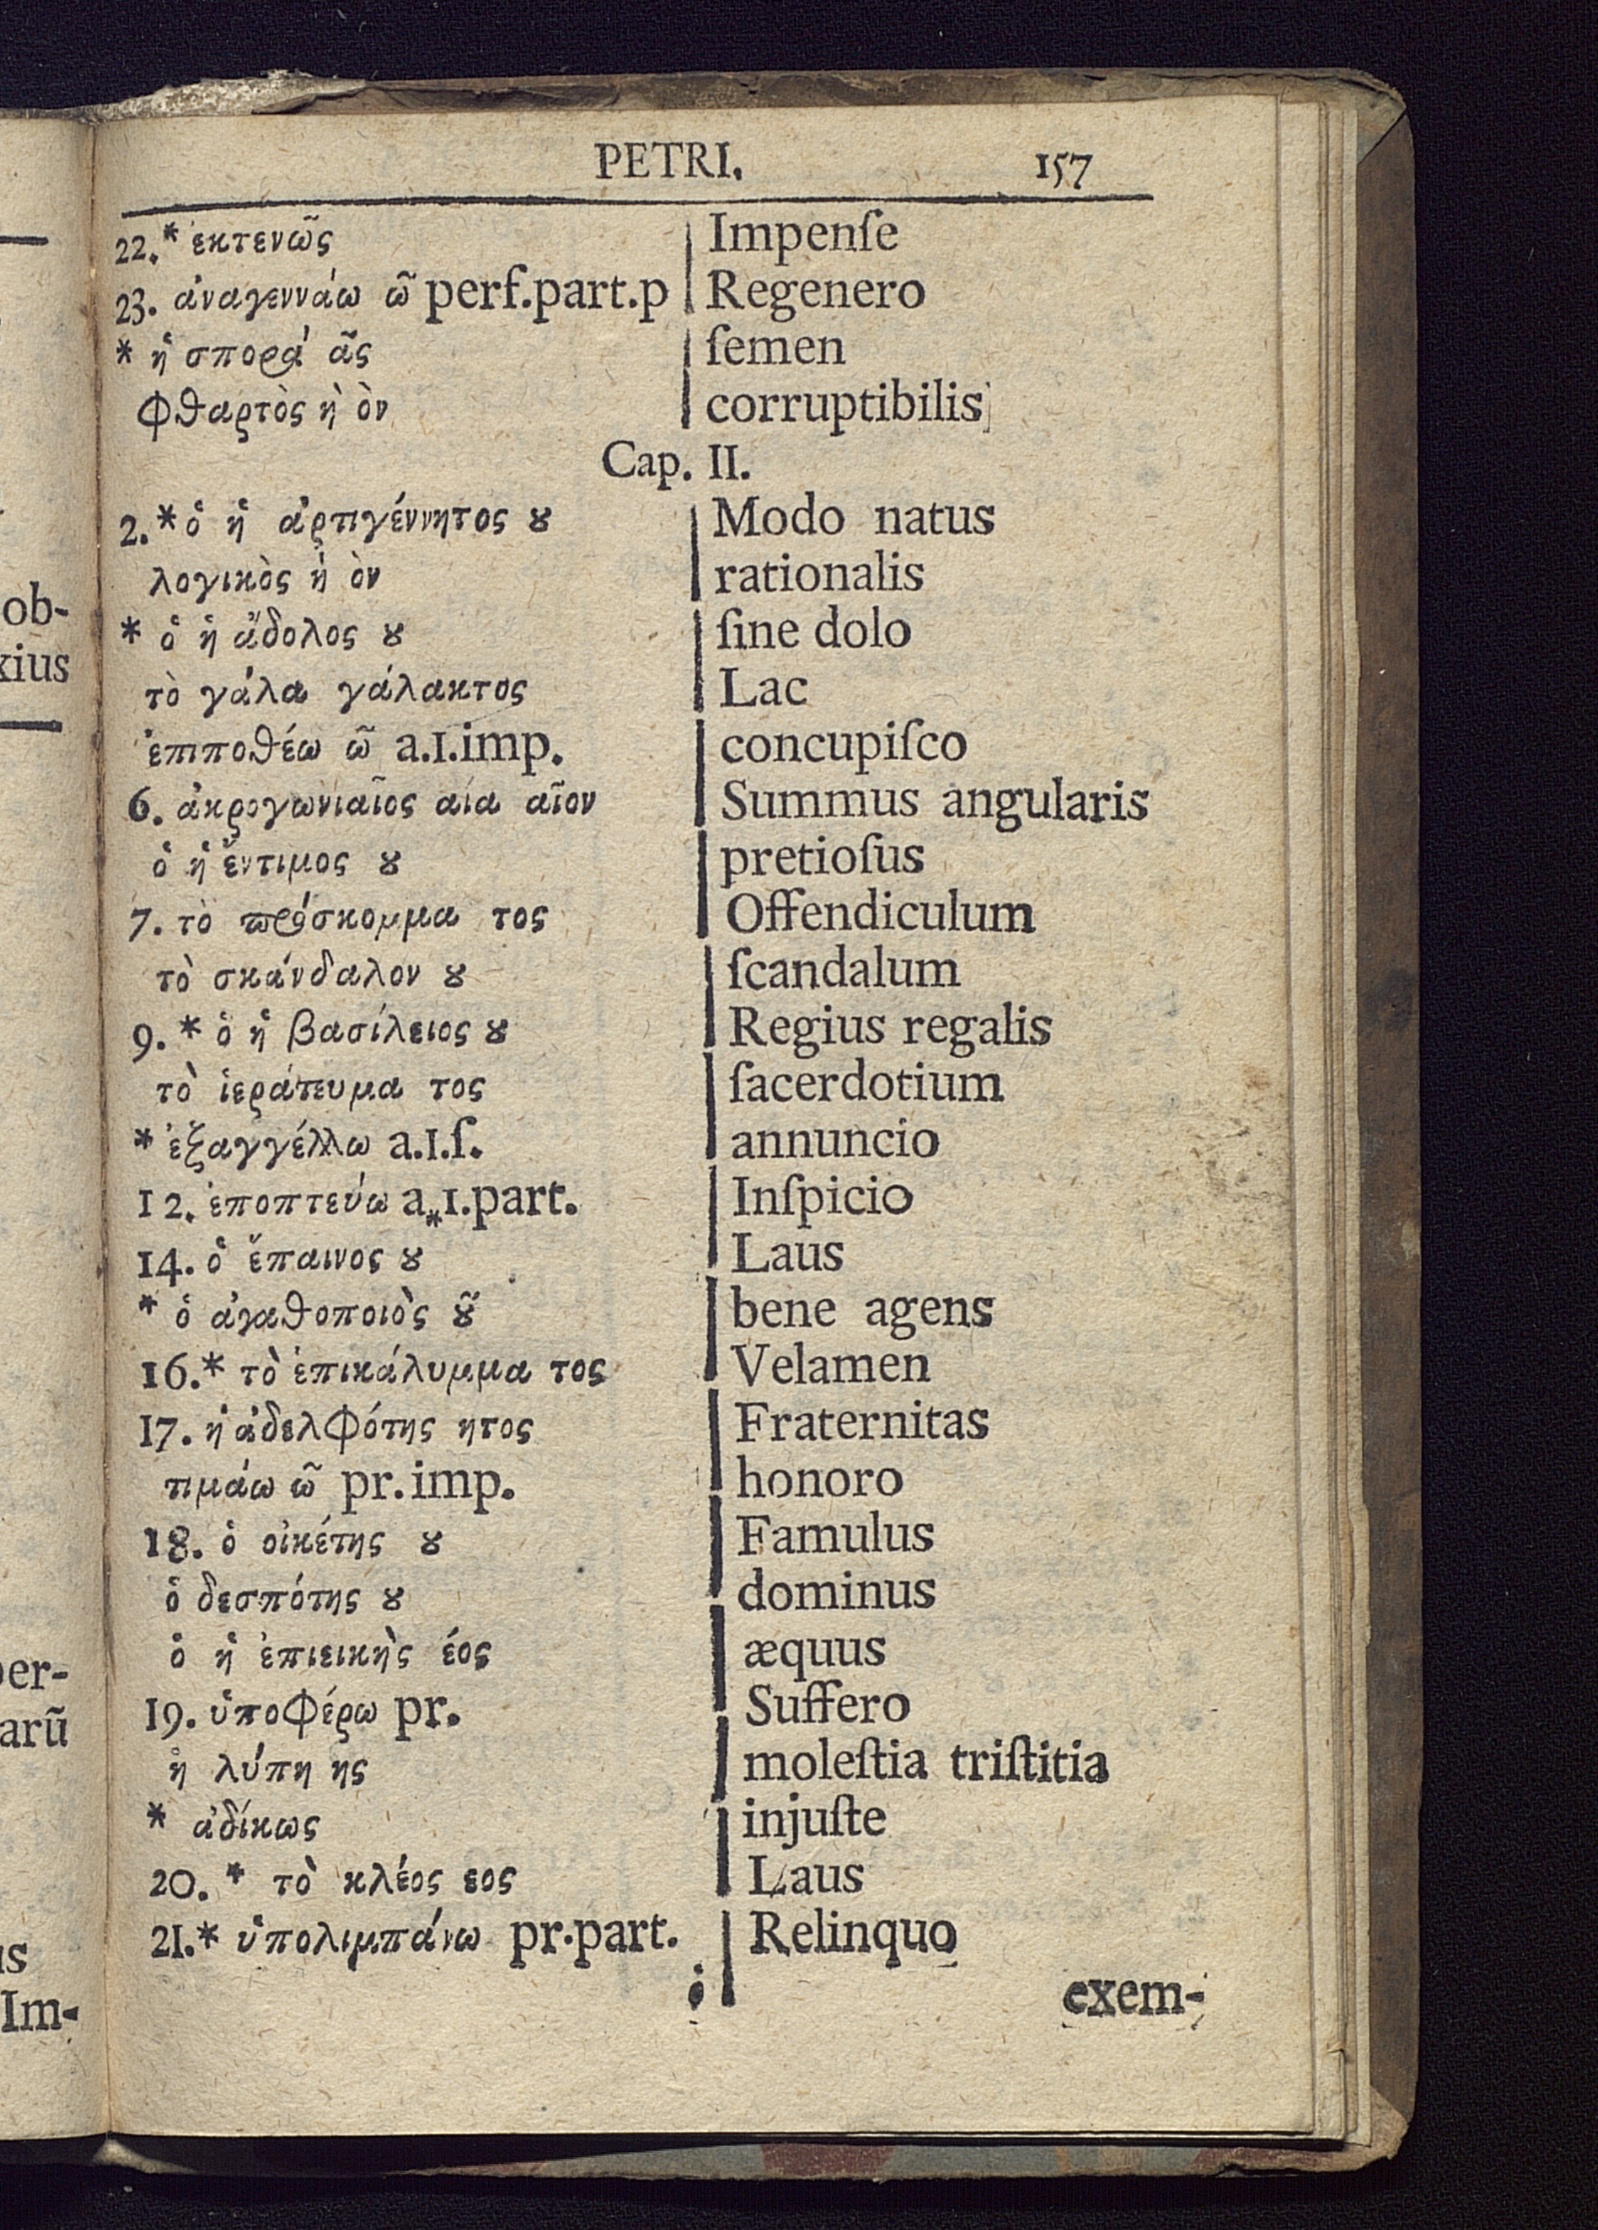 PETRI. 157
22.* ἐκτενῶς Impenſe
23. ἀναγεννάω ῶ perf.part.p Regenero
* ἡ σπορά ᾶς ſemen
φθαρτὸς ὴ ὸν corruptibilis
Cap. II.
2.* ὁ ἡ ἀρτιγέννητος ȣ Modo natus
λογικὸς ὴ ὸν rationalis
* ὁ ἡ ἄδολος ȣ ſine dolo
τὸ γάλα γάλακτος Lac
ἐπιποθέω ῶ a.1.imp. concupiſco
6. ἀκρογωνιαῖος αία αῖον Summus angularis
ὁ ἡ ἔντιμος ȣ pretioſus
7. τὸ πρόσκομμα τος Offendiculum
τὸ σκάνδαλον ȣ ſcandalum
9. * ὁ ἡ βασίλειος ȣ Regius regalis
τὸ ἱεράτευμα τος ſacerdotium
* ἐξαγγέλλω a.1.ſ. annuncio
12. ἐποπτεύω a*1.part. Inſpicio
14. ὁ ἔπαινος ȣ Laus
* ὁ ἀγαθοποιὸς ȣ͂ bene agens
16.* τὸ ἐπικάλυμμα τος Velamen
17. ἡ ἀδελφότης ητος Fraternitas
τιμάω ῶ pr. imp. honoro
18. ὁ οἰκέτης ȣ Famulus
ὁ δεσπότης ȣ dominus
ὁ ἡ ἐπιεικὴς έος æquus
19. ὑποφέρω pr. Suffero
ἡ λύπη ης moleſtia triſtitia
* ἀδίκως injuſte
20. * τὸ κλέος εος Laus
21.* ὑπολιμπάνω pr.part. Relinquo
ὁ exem-
ob-
xius
per-
arũ
us
Im-